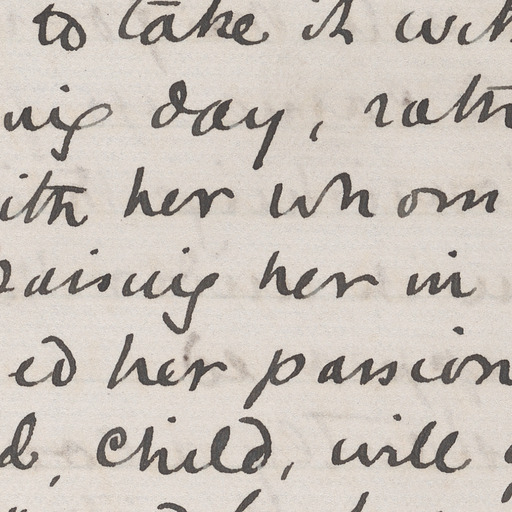 to take it with
ing day, rath
ith her whom
raising her in
ed her passion
d, child, will